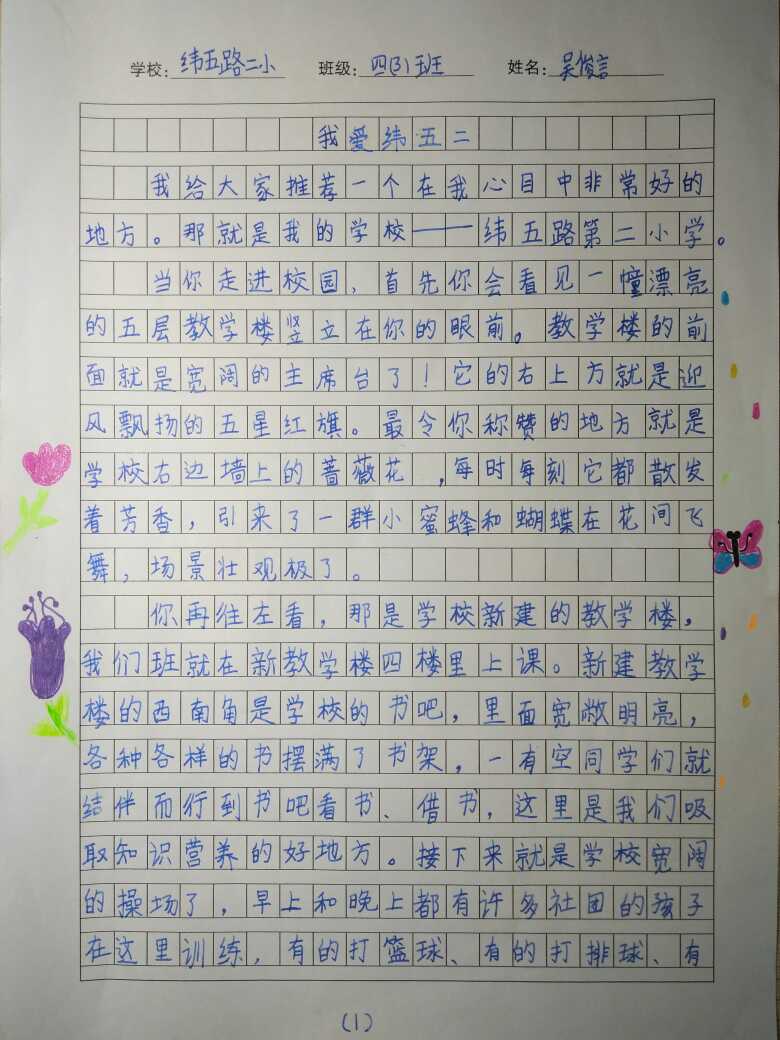 学校: 纬五路二小 班级: 四(3)班 姓名: 吴俊言
我爱纬五二
我给大家推荐一个在我心目中非常好的
地方。那就是我的学校——纬五路第二小学。
当你走进校园，首先你会看见一幢漂亮
的五层教学楼竖立在你的眼前。教学楼的前
面就是宽阔的主席台了！它的右上方就是迎
风飘扬的五星红旗。最令你称赞的地方就是
学校右边墙上的蔷薇花，每时每刻它都散发
着芳香，引来了一群小蜜蜂和蝴蝶在花间飞
舞，场景壮观极了。
你再往左看，那是学校新建的教学楼，
我们班就在新教学楼四楼里上课。新建教学
楼的西南角是学校的书吧，里面宽敞明亮，
各种各样的书摆满了书架，一有空同学们就
结伴而行到书吧看书、借书，这里是我们吸
取知识营养的好地方。接下来就是学校宽阔
的操场了，早上和晚上都有许多社团的孩子
在这里训练，有的打篮球、有的打排球、有
(1)